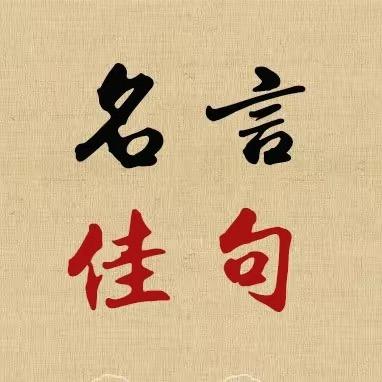 名言
佳句